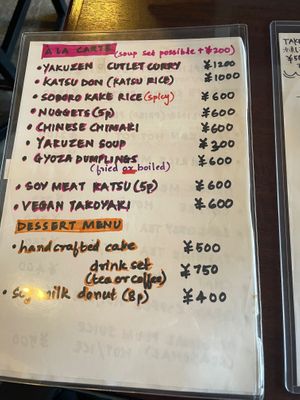 A LA CARTE (soup set possible +¥200)
• YAKUZEN CUTLET CURRY ¥1200
• KATSU DON (KATSU RICE) ¥1000
• SOBORO KAKE RICE (spicy) ¥600
• NUGGETS (5p) ¥600
• CHINESE CHIMAKI ¥600
• YAKUZEN SOUP ¥300
• GYOZA DUMPLINGS ¥600
(fried or boiled)
• SOY MEAT KATSU (5p) ¥600
• VEGAN TAKOYAKI ¥600
DESSERT MENU
• handcrafted cake ¥500
drink set ¥750
(tea or coffee)
• soy milk donut (8p) ¥400
TAKE